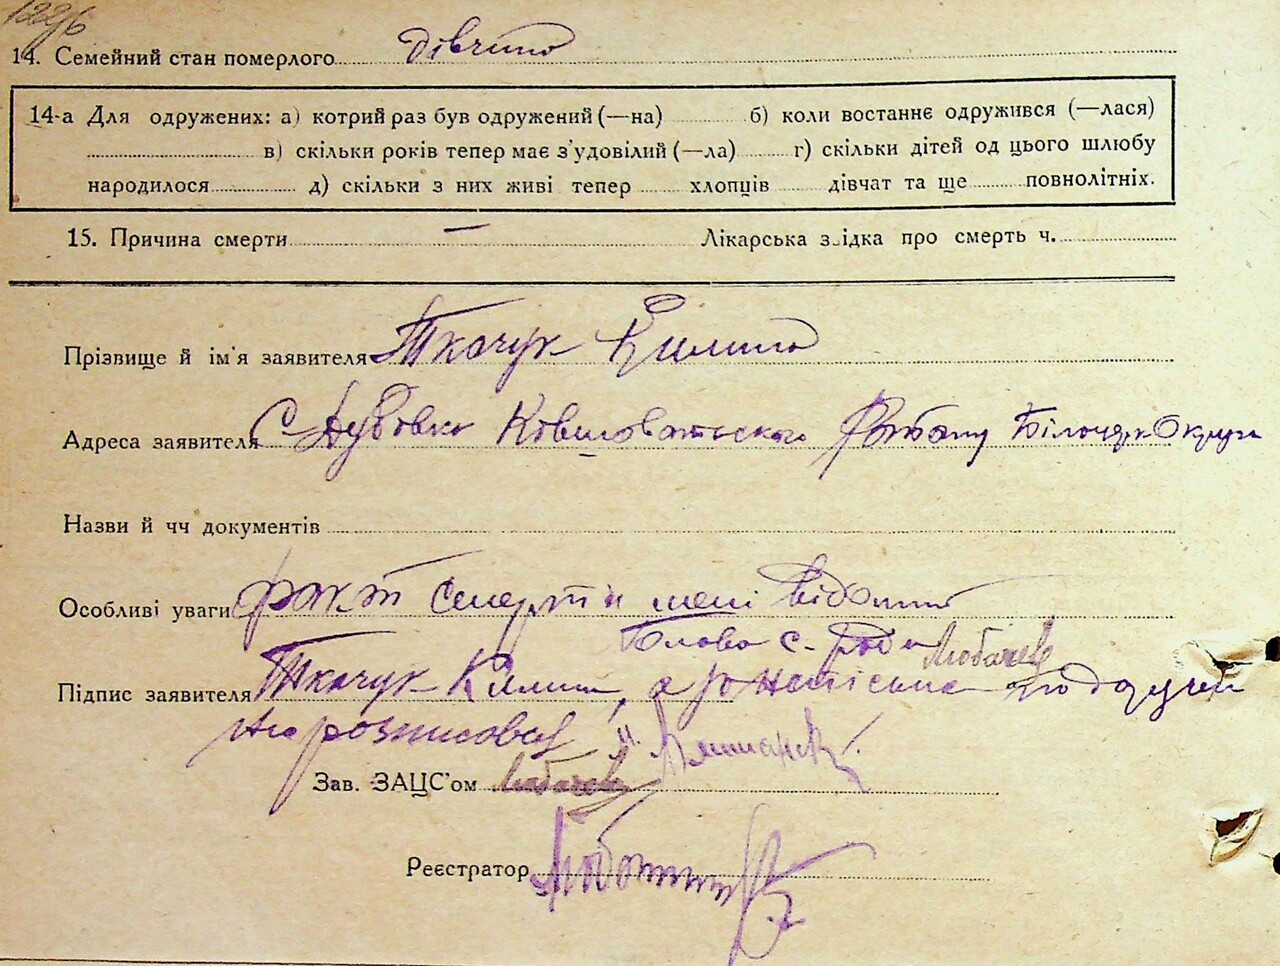 122
14. Семейний стан померлого дівчина
14-а Для одружених: а) котрий раз був одружений (—на) б) коли востаннє одружився (—лася)
в) скільки років тепер має з'удовілий (—ла) г) скільки дітей од цього шлюбу
народилося д) скільки з них живі тепер хлопців дівчат та ще повнолітніх.
15. Причина смерти — Лікарська з ідка про смерть ч.
Прізвище й ім'я заявителя Ткачук Килина
Адреса заявителя с Дубівка Ківшоватського Району Білоцерк Округи
Назви й чч документів
Особливі уваги факт смерти мені відомий
Підпис заявителя Ткачук Килина, а
розписовся
Зав. ЗАЦС'ом
Реєстратор